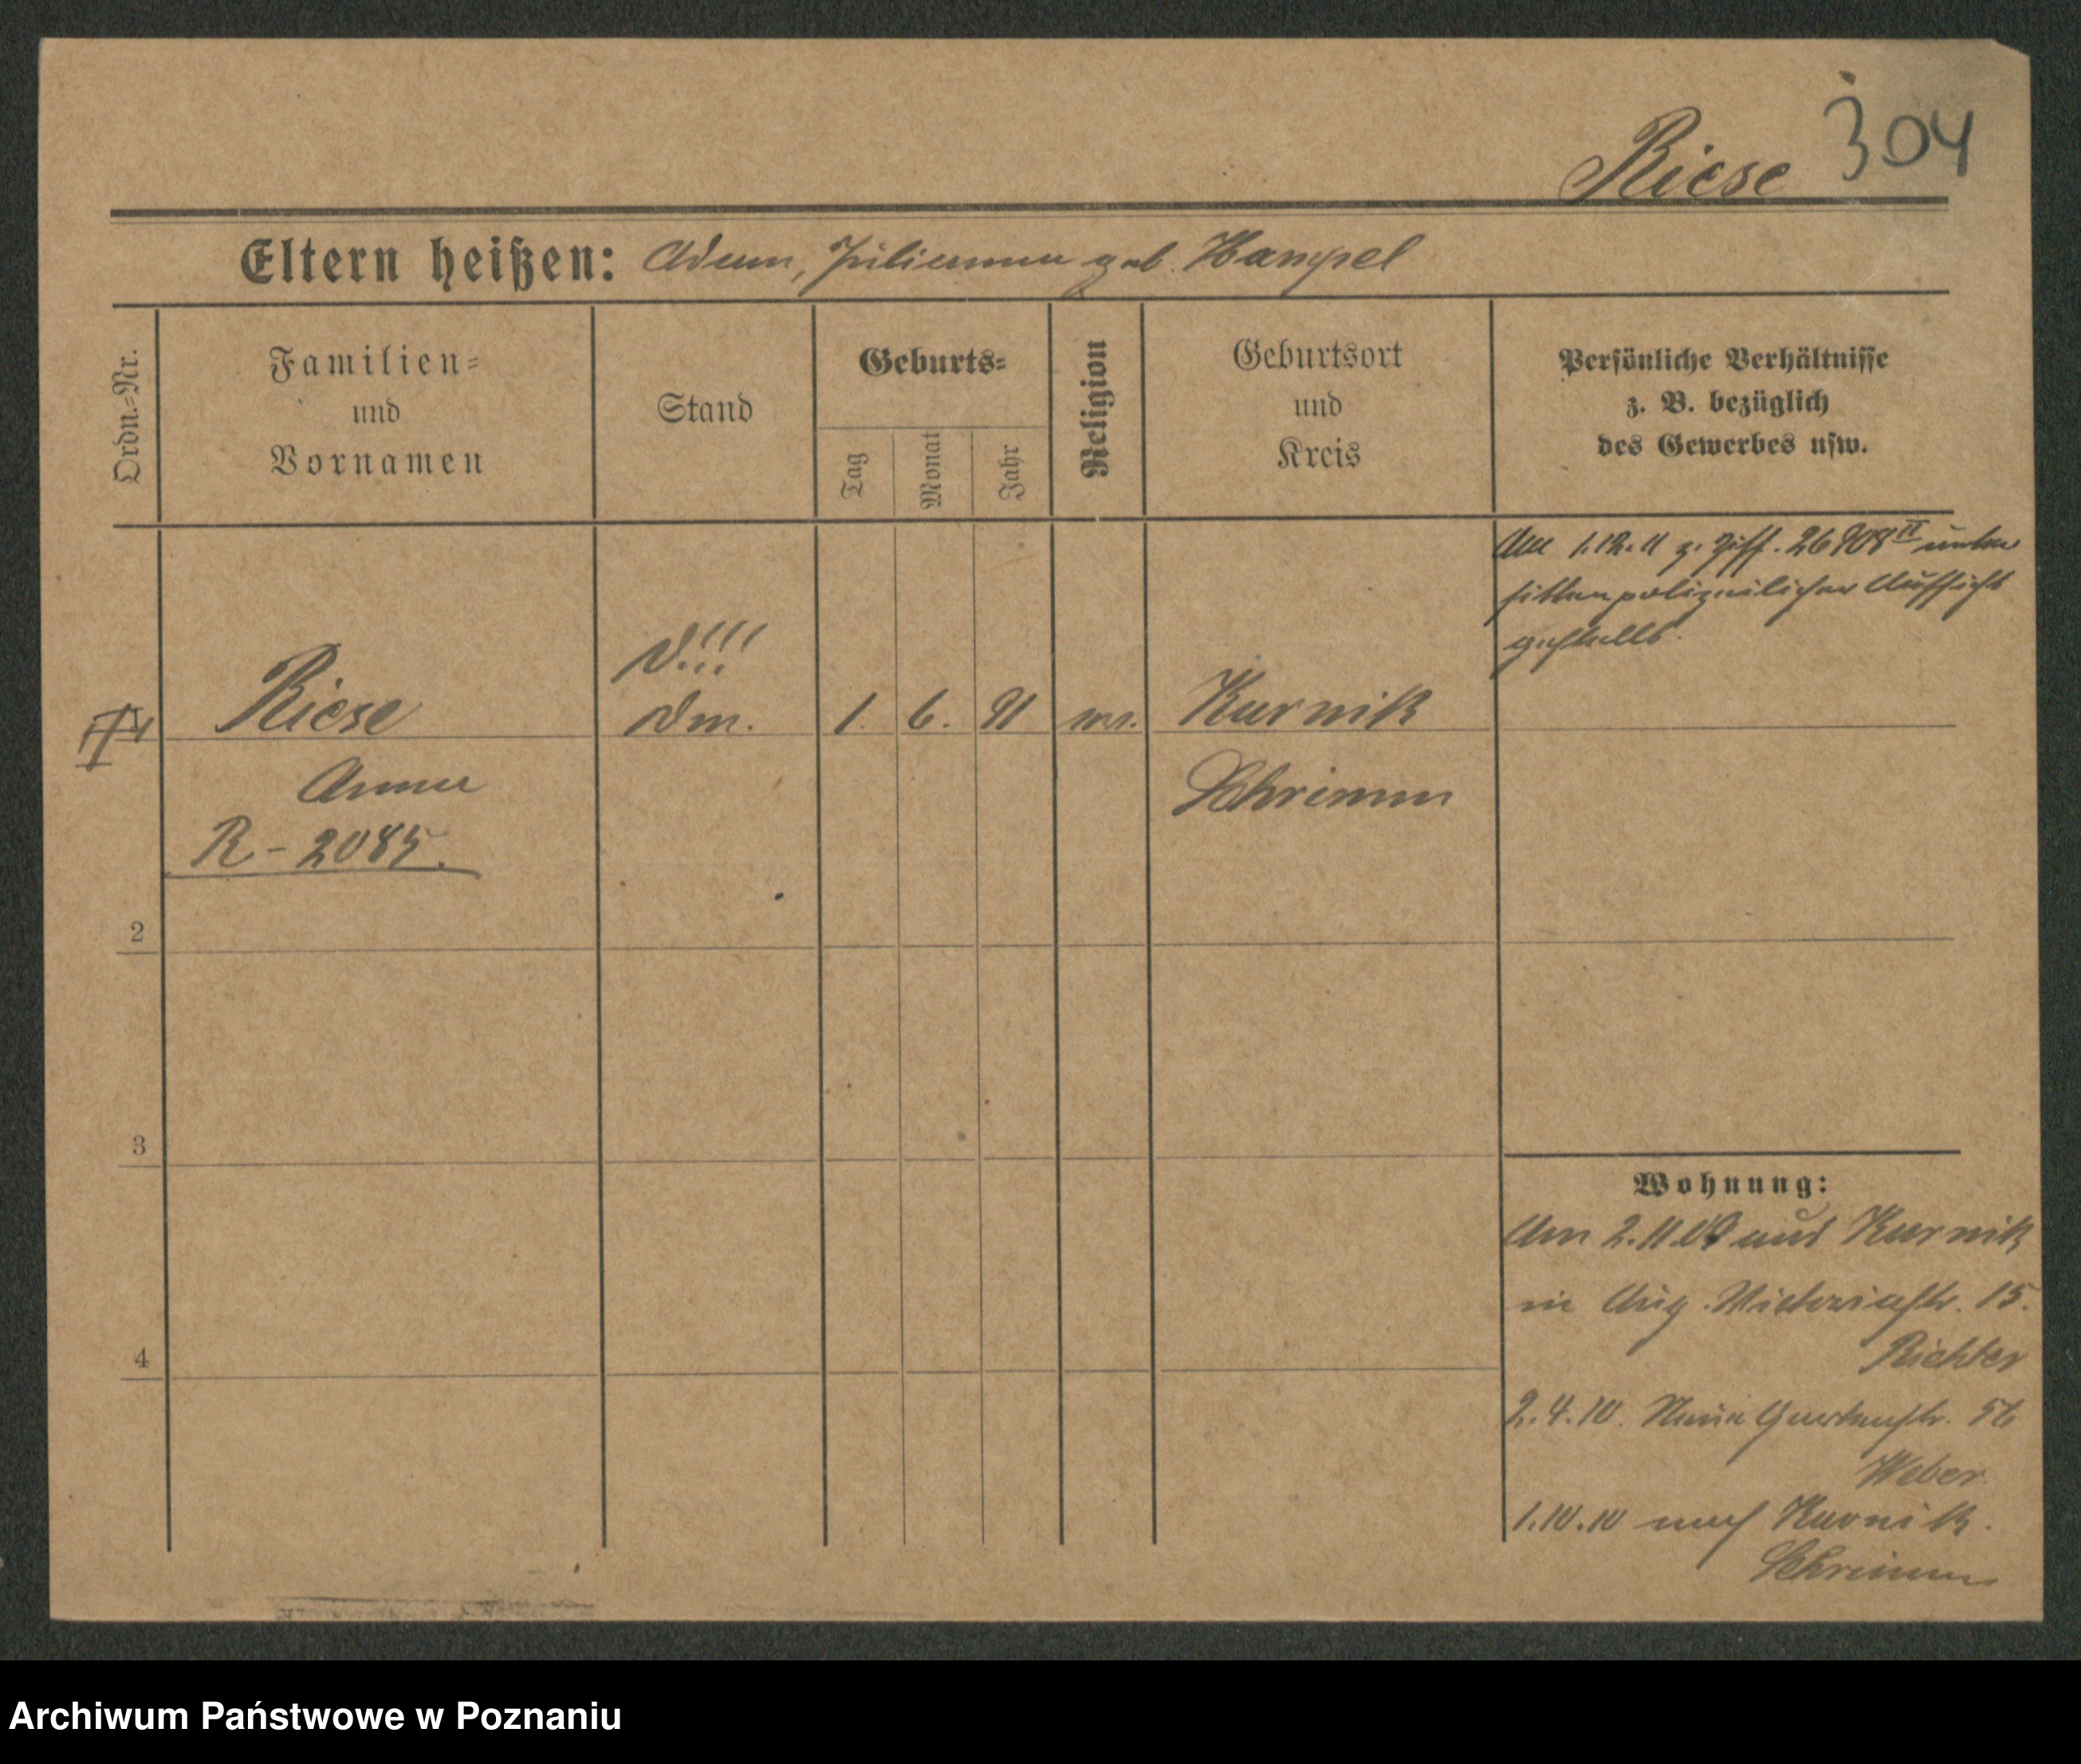 Riese 304
Eltern heißen: Adam, Julianna geb. Hampel
Ordn.=Nr.
Familien=
und
Vornamen
Stand
Geburts=
Tag
Monat
Jahr
Religion
Geburtsort
und
Kreis
Persönliche Verhältnisse
z. B. bezüglich
des Gewerbes usw.
Am 1.12.11 z. Ziff. 26908 II unter
sittenpolizeilicher Aufsicht
gestellt.
D!!!
Riese Dm. 1. 6. 91 Kurnik
Anna Schrimm
R - 2085.
2
3
4
Wohnung:
Am 2.11.09 aus Kurnik
in Aug. Victoriastr. 15.
Richter
2.4.10. Neue Gartenstr. 56
Weber.
1.10.10 nach Kurnik.
Schrimm
Archiwum Państwowe w Poznaniu